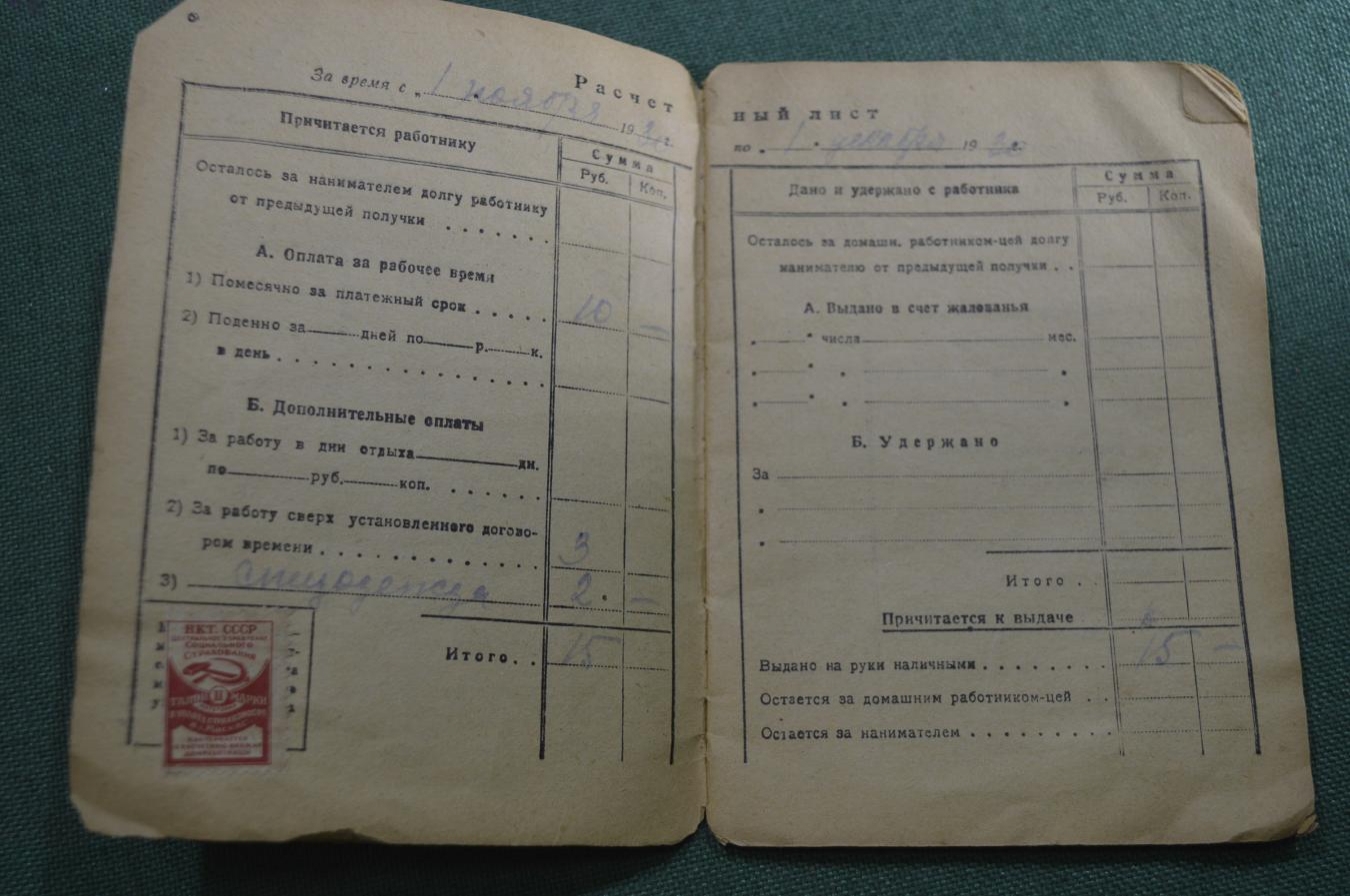 Расчетный лист
За время с „1 ноября 1930 г.
по „1" декабря 1930 г.
Причитается работнику
Сумма
Руб. Коп.
Осталось за нанимателем долгу работнику
от предыдущей получки . . . . . . .
А. Оплата за рабочее время
1) Помесячно за платежный срок . . . . . 10 —
2) Поденно за ____ дней по ____ р. ____ к.
в день . . . . . . . . . . . . . . . .
Б. Дополнительные оплаты
1) За работу в дни отдыха ____ дн.
по ____ руб. ____ коп. . . . . . .
2) За работу сверх установленного догово-
ром времени . . . . . . . . . . . . 3
3) спецодежда 2. —
Итого . . 15
НКТ. СССР
Социального
Страхования
ТАЛОН II МАРКИ
Дано и удержано с работника
Сумма
Руб. Коп.
Осталось за домашн. работником-цей долгу
нанимателю от предыдущей получки . .
А. Выдано в счет жалованья
„ ____ " числа ____ мес.
Б. Удержано
За
Итого .
Причитается к выдаче
Выдано на руки наличными . . . . . . . . 15 —
Остается за домашним работником-цей . .
Остается за нанимателем . . . . . . . . .